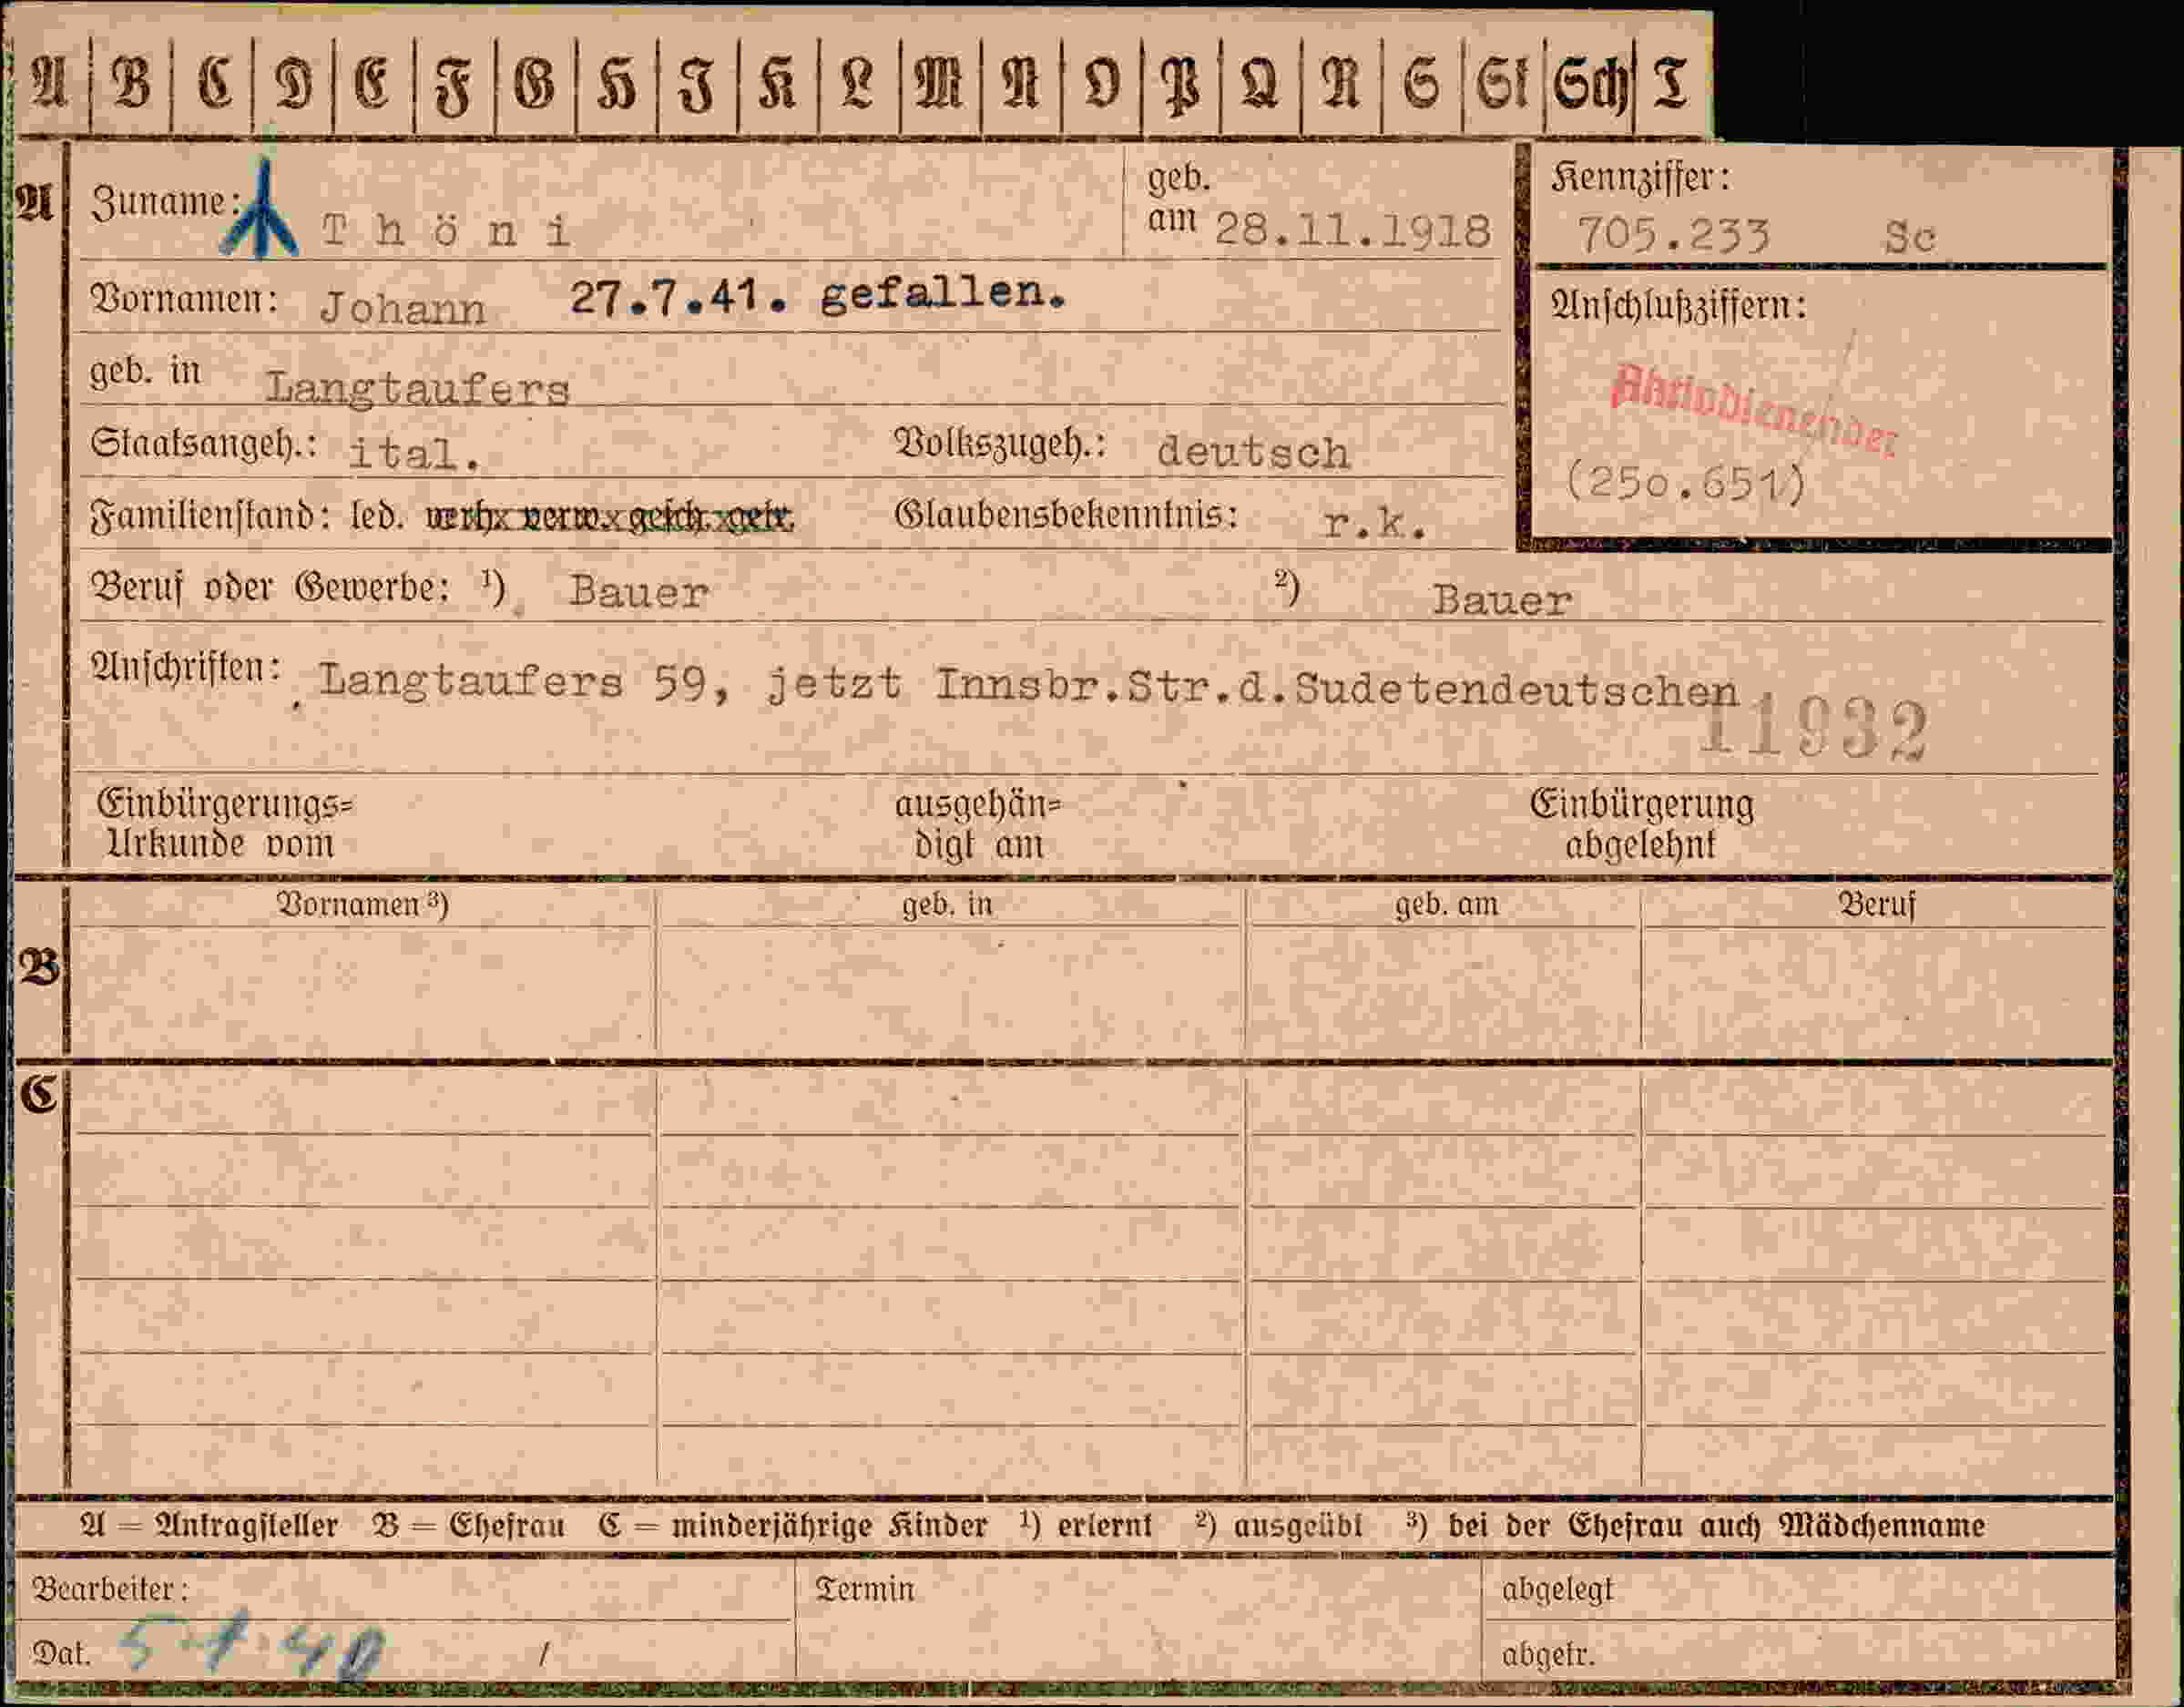 A B C D E F G H I K L M N O P Q R S St Sch T
A Zuname: Thöni geb. am 28.11.1918
Kennziffer: 705.233 Sc
Vornamen: Johann 27.7.41. gefallen.
Anschlußziffern:
geb. in Langtaufers
Aktivdienender
Staatsangeh.: ital. Volkszugeh.: deutsch
(250.651)
Familienstand: led. verh. verw. gesch. getr. Glaubensbekenntnis: r.k.
Beruf oder Gewerbe: ¹) Bauer ²) Bauer
Anschriften: Langtaufers 59, jetzt Innsbr.Str.d.Sudetendeutschen
11932
Einbürgerungs= ausgehän= Einbürgerung
Urkunde vom digt am abgelehnt
Vornamen ³) geb. in geb. am Beruf
B
C
A = Antragsteller B = Ehefrau C = minderjährige Kinder ¹) erlernt ²) ausgeübt ³) bei der Ehefrau auch Mädchenname
Bearbeiter: Termin abgelegt
Dat. 5.1.40 / abgetr.